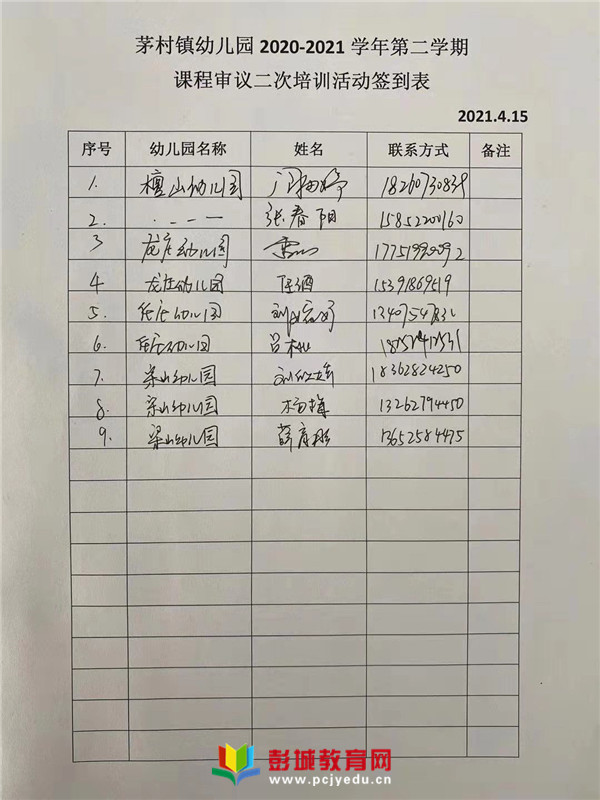 茅村镇幼儿园 2020-2021 学年第二学期
课程审议二次培训活动签到表
2021.4.15
序号 幼儿园名称 姓名 联系方式 备注
1. 檀山幼儿园 18260730839
2. . - - — 张春阳 15852200160
3 龙庄幼儿园
4 龙庄幼儿园 15391869519
5. 任庄幼儿园
6. 任庄幼儿园
7. 梁山幼儿园 18362824250
8. 梁山幼儿园 杨梅 13262794450
9. 梁山幼儿园 13652584475
彭城教育网
www.pcjyedu.cn